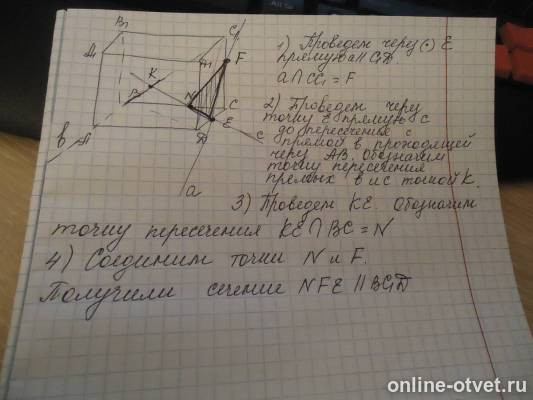 B₁
C₁
A₁
D₁
F
K
N
B
C
E
в
A
D
c
a
1) Проведем через (·) E
прямую a || C₁D.
a ∩ CC₁ = F
2) Проведем через
точку E прямую c
до пересечение с
прямой в проходящей
через AB. Обозначим
точку пересечения
прямых в и с точкой K.
3) Проведем KE. Обозначим
точку пересечения KE ∩ BC = N
4) Соединим точки N и F.
Получили сечение NFE || BC₁D
online-otvet.ru